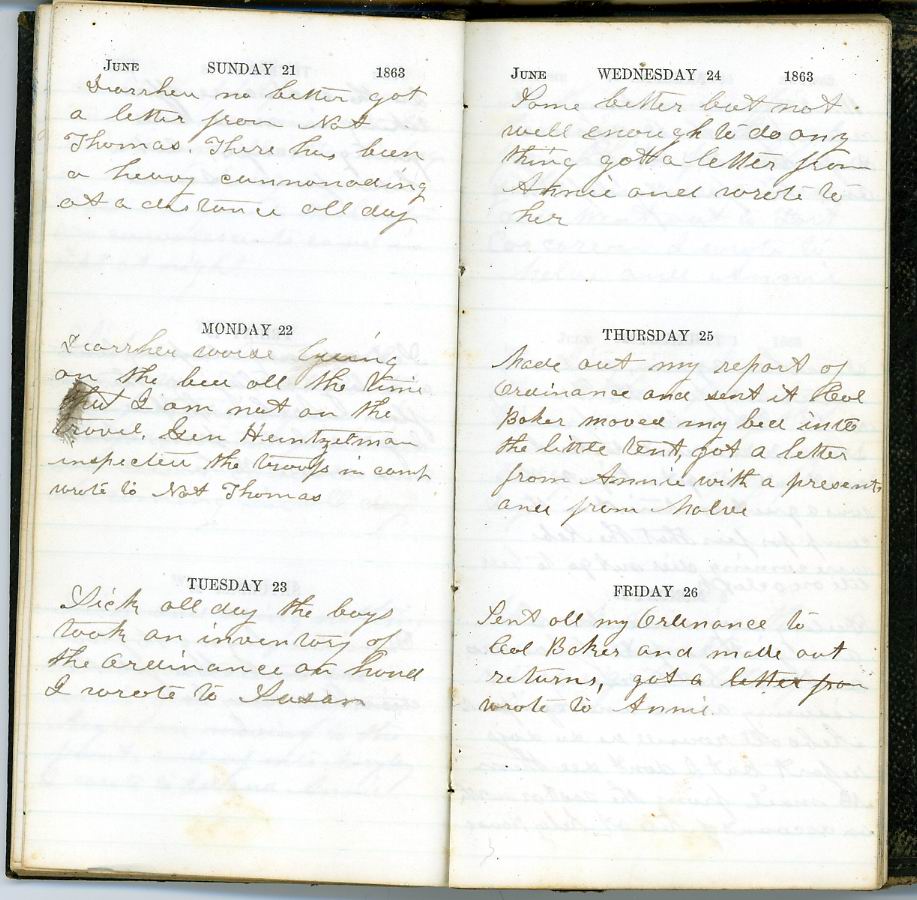 JUNE SUNDAY 21 1863
Diarrhea no better got
a letter from Nat
Thomas. There has been
a heavy cannonading
at a distance all day
MONDAY 22
Diarrhea worse lyeing
on the bed all the time
that I am not on the
travel. Gen Heintzelman
inspected the troops in camp
wrote to Nat Thomas
TUESDAY 23
Sick all day the boys
took an inventory of
the Ordinance on hand
I wrote to Susan
JUNE WEDNESDAY 24 1863
Some better but not
well enough to do any
thing got a letter from
Annie and wrote to
her
THURSDAY 25
Made out my report of
Ordinance and sent it Col
Baker moved my bed into
the little tent, got a letter
from Annie with a present
and from Malve
FRIDAY 26
Sent all my Ordinance to
Col Baker and made out
returns, got a letter from
wrote to Annie.